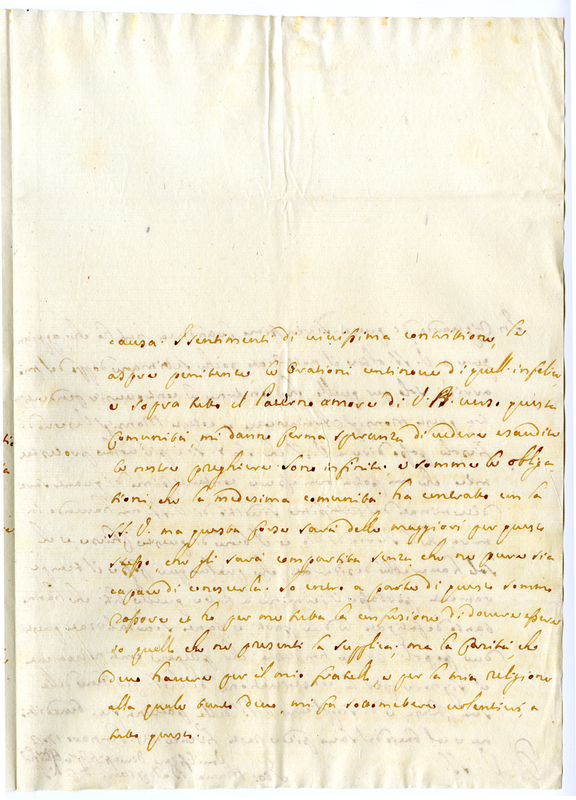 causa. I sentimenti di vivissima contrittione, le
aspre penitenze le Orationi continove di quell'infelice
e sopra tutto il Paterno amore di V. B. verso questa
Comunità, mi danno ferma speranza di vedere esaudite
le nostre preghiere. Sono infinite e somme le obliga
tioni, che la medesima comunità ha contratto con la
SS. V. ma questa forse sarà delle maggiori per questo
stesso, che gli sarà compartita senza che ne pure sia
capace di conoscerla. Io entro a parte di questo sommo
et ho per me tutta la confusione di dovere essere
io quello che ne presenti la supplica; ma la Carità, che
devo havere per il mio fratello, e per la mia religione
alla quale tanto devo, mi fa sottomettere volentieri, a
tutto questo.